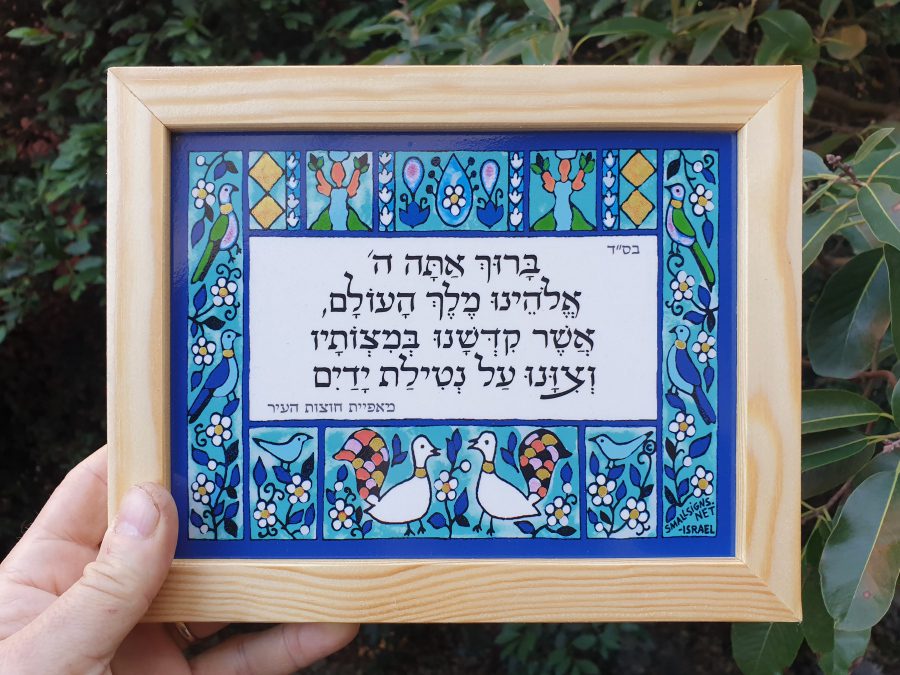 בס״ד
בָּרוּךְ אַתָּה ה׳
אֱלֹהֵינוּ מֶלֶךְ הָעוֹלָם,
אֲשֶׁר קִדְּשָׁנוּ בְּמִצְוֹתָיו
וְצִוָּנוּ עַל נְטִילַת יָדַיִם
מאפיית חוצות העיר
©
SMALLSIGNS.
NET
-ISRAEL